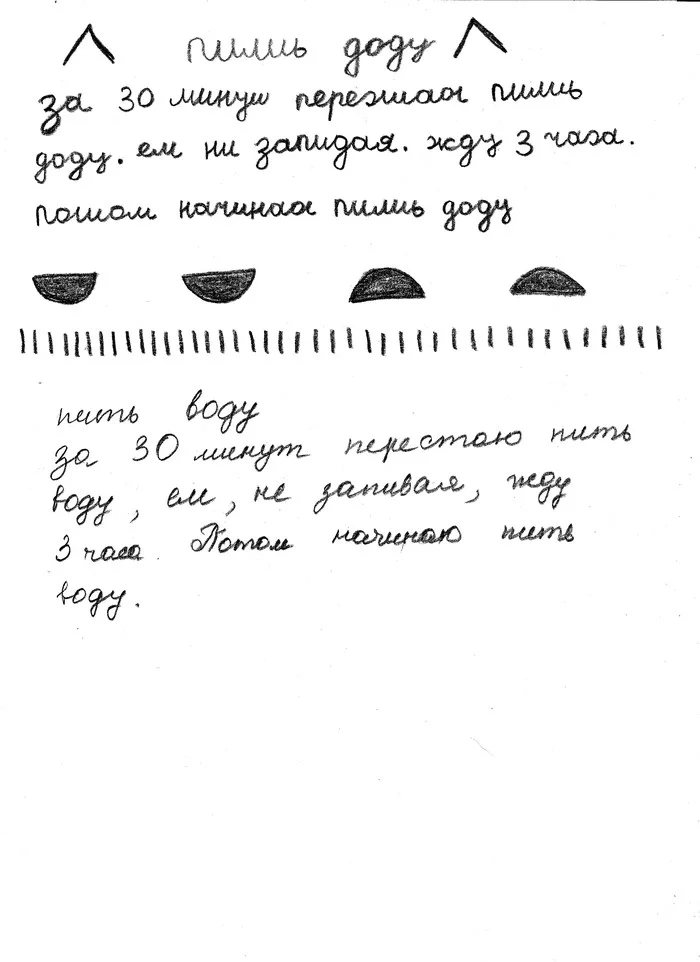 пилиь доду
за 30 минуш перезшаю пилиь
доду. ем ни запидая. жду 3 часа.
пошом начинаю пилиь доду
пить воду
за 30 минут перестаю пить
воду, ем, не запивая, жду
3 часа. Потом начинаю пить
воду.